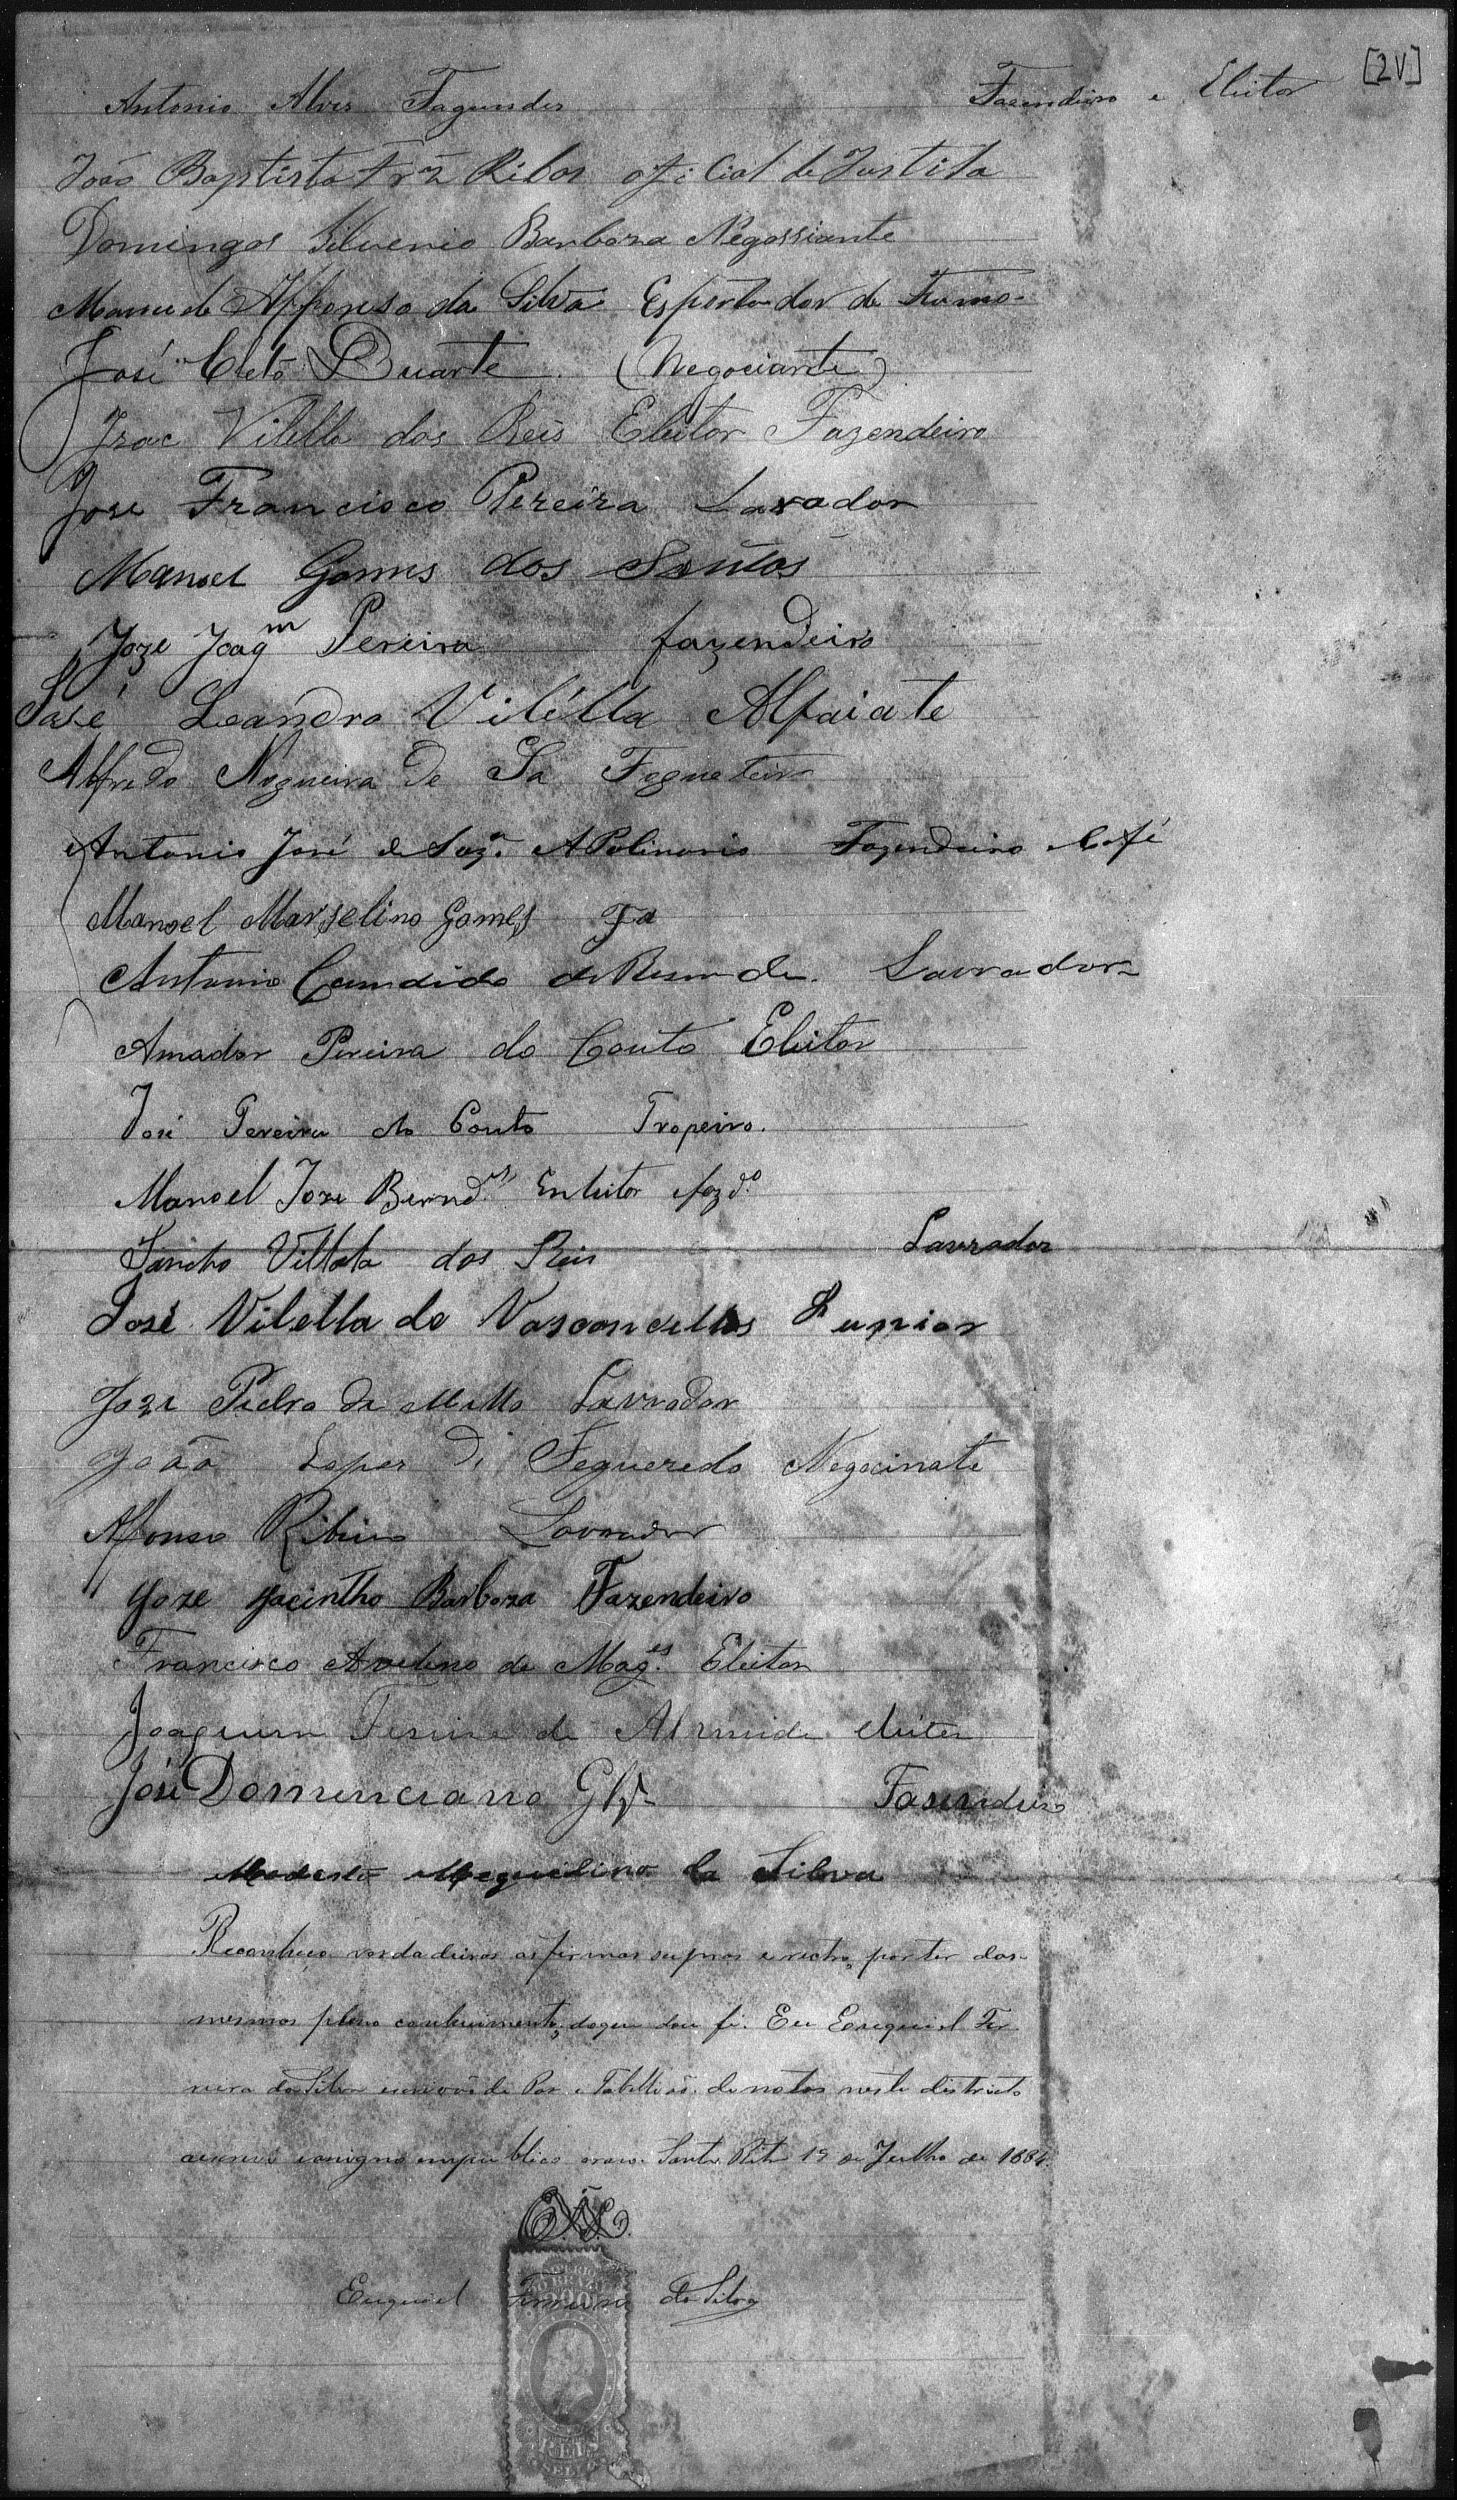 [2V]
Antonio Alves Fagundes Fazendeiro e Eleitor
João Baptista Frz Ribos oficial de Justisa
Domingos Silverio Barboza Negossiante
Manuel Affonso da Silva Esportador de Fumo
José Cleto Duarte (Negociante)
Izac Vilella dos Reis Eleitor Fazendeiro
Jose Francisco Pereira Lavador
Manoel Gomes dos Santos
Joze Joaqm Pereira fazendeiro
José Leandro Vilélla Alfaiate
Alfredo Nogueira de Sa Fogueteiro
Antonio José de Soza Apolinario Fazendeiro Café
Manoel Marselino Gomes Fa
Antonio Candido de Resende Lavrador
Amador Pereira do Couto Eleitor
José Pereira do Couto Tropeiro.
Manoel Joze Bernds Enleitor e fazdo
Sancho Villela dos Reis Lavrador
José Vilella de Vasconcellos Junior
Joze Pedro de Mello Lavrador
João Lopes di Fegueredo Negocinate
Affonso Ribeiro Lavrador
Joze Jacintho Barboza Fazendeiro
Francisco Avelino de Mages Eleitor
Joaquim Ferreira de Almeida eleitor
José Domenciano Fasendeiro
Modesto Meguelino da Silva
Reconheço verdadeiras as firmas supras e rectro, por ter dos
mesmos pleno conhecimento, do que dou fé. Eu Ezequiel Fer
reira da Silva escrivão de Paz e Tabellião de notas neste districto
escrevi e asigno em publico e raso. Santa Rita 19 de Julho de 1884.
Ezequiel Ferreira da Silva
200
REIS